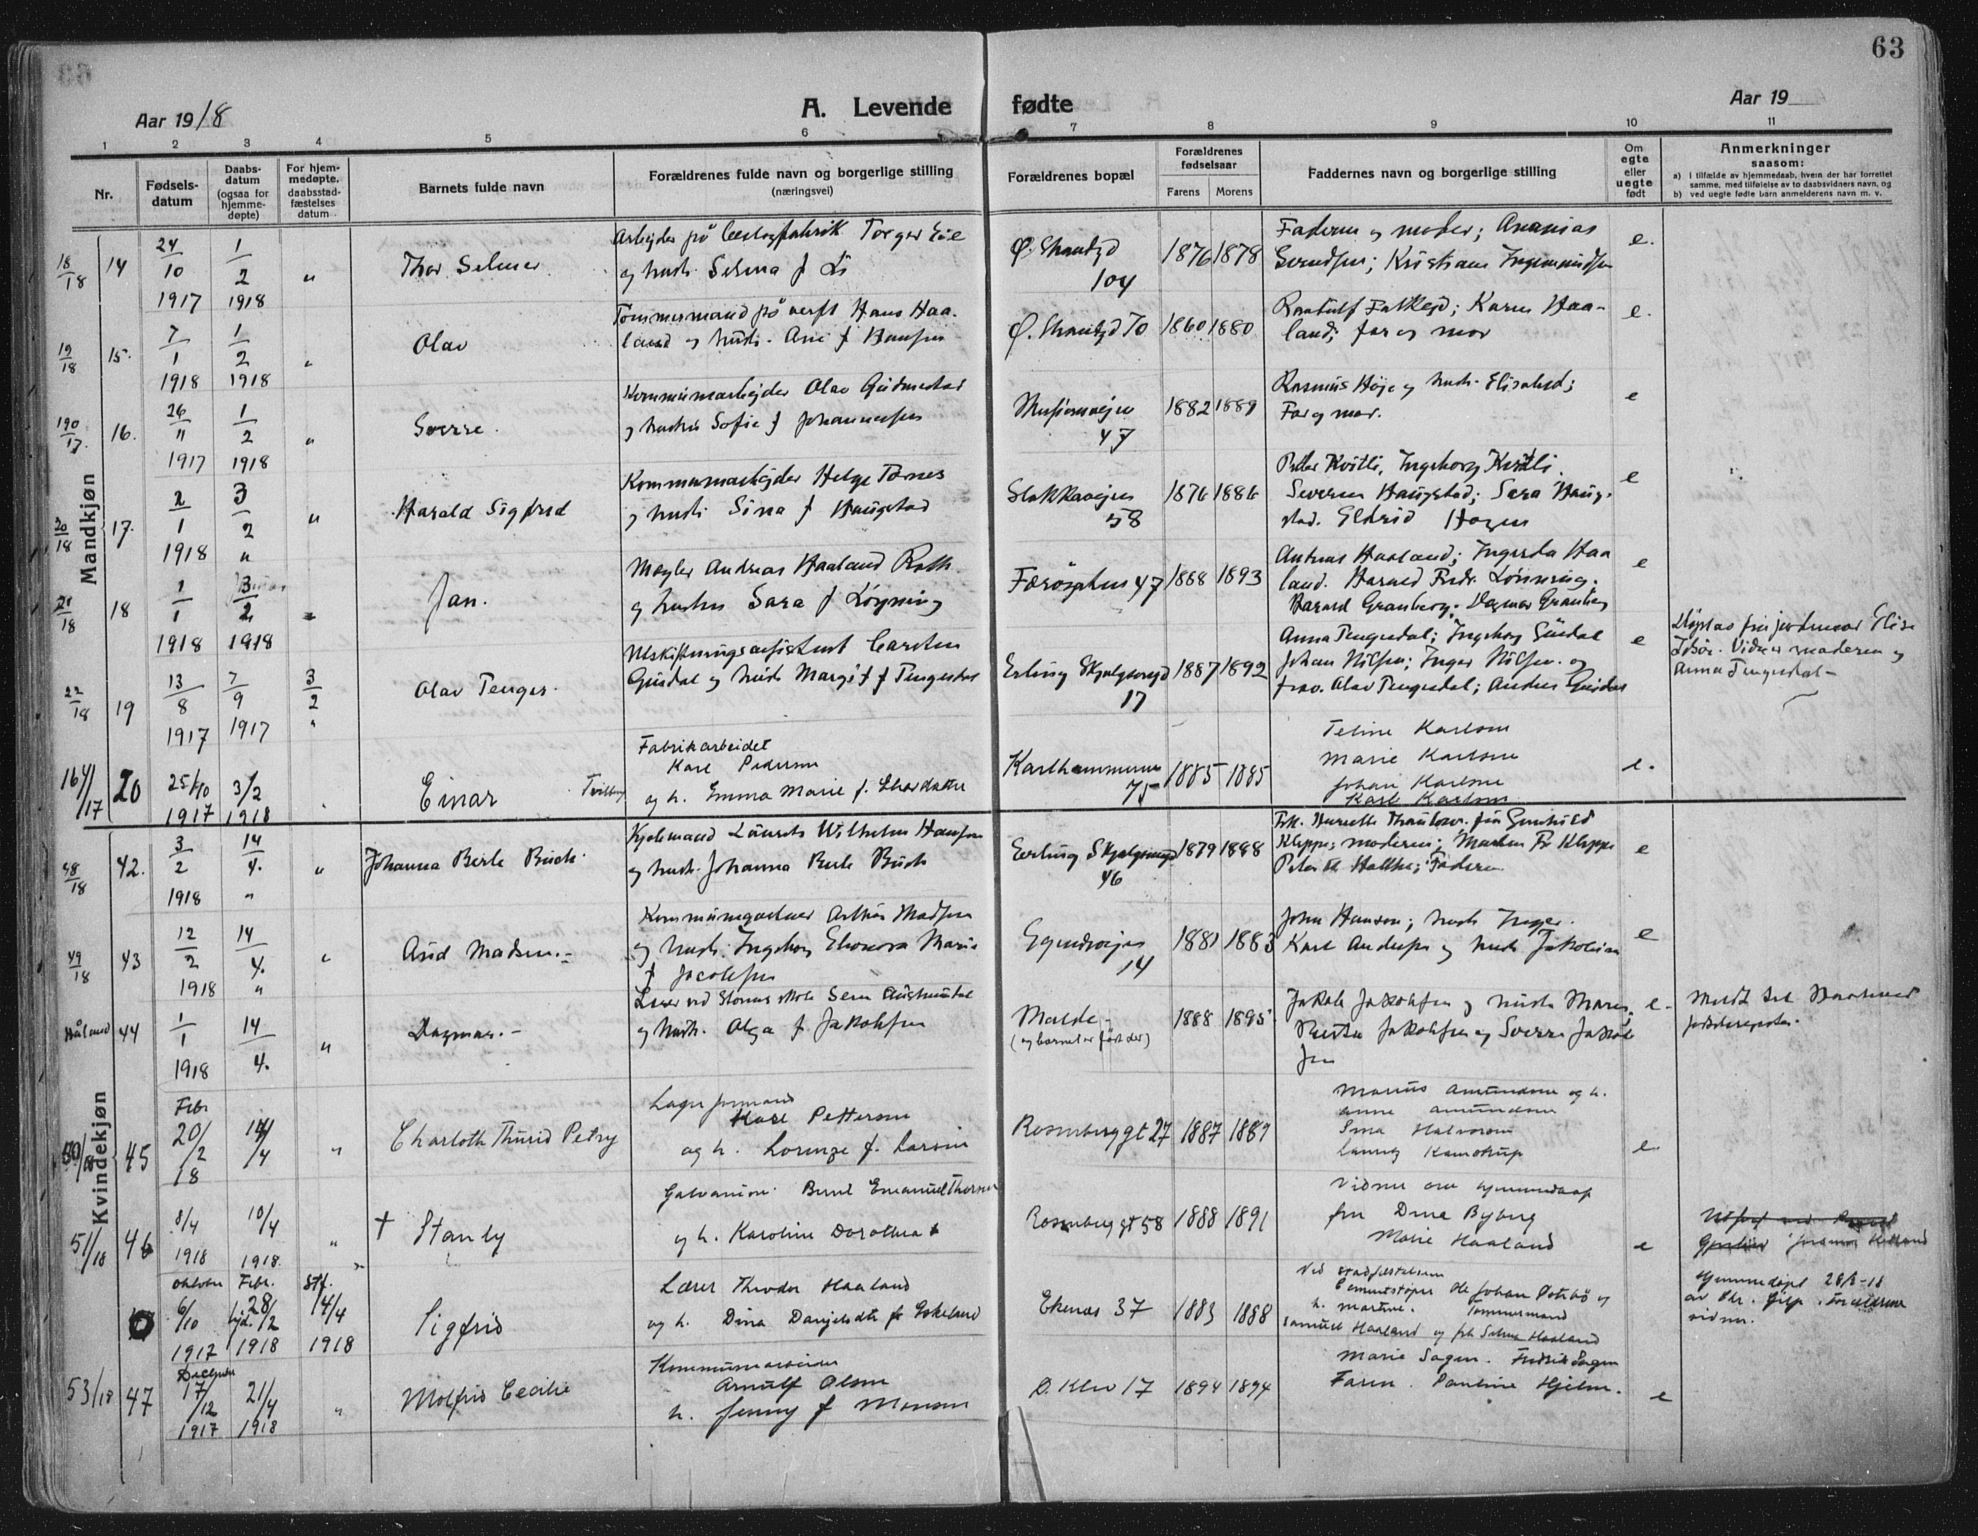 63
Aar 1918
A. Levende fødte
Aar 19
1 2 3 4 5 6 7 8 9 10 11
Nr.
Fødsels-
datum
Daabs-
datum
(ogsaa for
hjemme-
døpte)
For hjem-
medøpte.
daabsstad-
fæstelses
datum
Barnets fulde navn
Forældrenes fulde navn og borgerlige stilling
(næringsvei)
Forældrenes bopæl
Forældrenes
fødselsaar
Farens Morens
Faddernes navn og borgerlige stilling
Om
egte
eller
uegte
født
Anmerkninger
saasom:
a) I tilfælde av hjemmedaab, hvem der har forrettet
samme, med tilføielse av to daabsvidners navn, og
b) ved uegte fødte barn anmelderens navn m. v.
Mandkjøn
18/18 14 24/10 1917 1/2 1918 " Thor Selmer
Arbejder på
og hustr. Selma f.
Ø. Strandgd
104
1876 1878
Faderen og moder; Ananias
Svendsen; Kristiane Ingemundsen
e.
19/18 15. 7/1 1918 1/2 1918 " Olav
Tømmermand på verft Hans Haa-
land og hustr. f Hansen
Ø. Strandgd 70
1860 1880
Falkejd; Karen Haa-
land; far og mor
e.
190/17. 16. 26/11 1917 1/2 1918 " Sverre.
Kommunearbejder Olav Gudmestad
og hustru Sofie f Johannessen
Musæumsvejen
47
1882 1889
Rasmus Høje og hustr. Elisabed;
Far og mor.
e
20/18 17. 2/1 1918 3/2 " " Harald Sigfred
Kommunearbejder Helge Tornes
og hustr. Sina f Haugstad
Stokkavejen
58
1876 1886
Peder Kvitli, Ingeborg Kvitli.
Severin Haugstad; Sara Haug-
stad. Eldrid Hagen
e
21/18 18 1/1 1918 3/2 1918 " Jan.
Megler Andreas Haaland Roth
og hustru Sara f Lønning
47
1868 1893
Andreas Haaland; Ingerda Haa
land. Harald Fredr. Lønning.
Harald Granberg; Dagmar Granberg
e
22/18 19 13/8 1917 7/9 1917 3/2 " Olav Tenges.
Utskiftningsassistent Carsten
Gusdal og hustr Margit f Tengesdal
Erling Skjalgsonsgd
17
1887 1892
Anna Tengesdal; Ingeborg Gusdal
Johan Nilsen; Inger Nilsen og
frøv. Olav Tengesdal; Anders Gusdal
e
Døptes fru jordmor Elise
Vidner moderen og
Anna Tengesdal-
164/17 20 25/10 1917 3/2 1918 " Einar Tvilling
Fabrikarbeidet
Karl Pedersen
og h. Emma Marie f.
Karlhammeren
75
1885 1885
Teline Karlsen
Marie Karlsen
Johan Karlsen
Karl Karlsen
e.
Kvindekjøn
48/18 42. 3/2 1918 14/4. " " Johanna Berle Buch.
Kjølemand Laurits Wilhelm Hansen
og hustr. Johanna Berle Buch
Eerling Skjalgsonsgd
46
1879 1888
Frk. Henriette
Kleppe; moderen;
Faderen
e
49/18 43 12/2 1918 14/4. " " Asid Madsen.-
Kommunegartner Arthur Madsen
og hustr. Ingeborg Eleonora Marie
f Jacobsen
14
1881 1883
John Hansen; hustr Inger.
Karl Andersen og hustr Jakobine
e
Håland 44 1/1 1918 14/4. " Dagmar.-
Lærer ved Storms skole Sem
og hustr. Olga f. Jakobsen
Malde-
(og barnet er født der)
1888 1895
Jakob Jakobsen og hustru Maren,
Jakobsen og Sverre Jakob
sen
e.
Meldt det Haalands
fødselsregister.
50/18 45 Febr 20/2 18 14/4 " Charloth Thurid Petry
Lagerformand
Karl Petterson
og h. Lorenze f. Larsen
Rosenberggt 27
1887 1889
Marius Amundsen og h.
Anne Amundsen
Sina Halvorsen
Kamstrup
e.
51/18 46 8/4 1918 10/4 1918. " † Stanly
Galvanisør. Bernt Emanuel Thorsen
og h. Karoline Dorothea
Rosenberg gt 58
1888 1891
Vidner om hjemmedaap
fru Dina Byberg
Marie Haaland
e
oktober 6/10 1917 Febr. 28/2 1918 Stf. 14/4 1918 Sigfrid
Lærer Theodor Haaland
og h. Dina Danjelsdtr f. Eskeland
Ekenæs 37
1883 1888
Ved stadfæstelsen
Cementstøper Ole Johan
h. Martine. Tømmermand
Samuel Haaland og frk Selma Haaland
Hjemmedøpt 28/2-18
av Chr. Gilje. Forældrene
vidner.
53/18 47 December 17/12 1917 21/4 1918 " Molfrid Cecilie
Kommunearbeider
Arnulf Olsen
h. Jenny f Monsen
Ø. Klev 17
1894 1894
Marie Sagen. Fredrik Sagen
Faren. Pauline Hjelm.
e